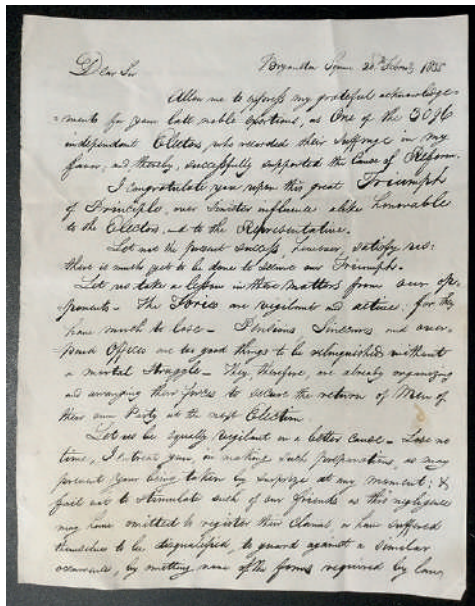 Dear Sir
Bryanston Square 20th Febru'y 1835
Allow me to express my grateful acknowledge-
-ments for your late noble exertions, as One of the 3096
independent Electors, who recorded their Suffrage in my
favor, and thereby, successfully supported the Cause of Reform.
I congratulate you upon this great Triumph
of Principle, over sinister influence alike honorable
to the Electors, and to the Representative.
Let not the present success, however, satisfy us:
there is much yet to be done to secure our Triumph.
Let us take a lesson in these matters from our op-
-ponents - The Tories are vigilant and active; for they
have much to lose - Pensions Sinecures and over-
-paid Offices are too good things to be relinquished without
a mortal struggle - They, therefore, are already organizing
and arranging their forces to secure the return of Men of
their own Party at the next Election
Let us be equally vigilant in a better cause - Lose no
time, I entreat you, in making such preparations, as may
prevent your being taken by surprize at any moment: &
fail not to stimulate such of our friends as thro' negligence
may have omitted to register their Claims, or have suffered
themselves to be disqualified, to guard against a similar
occurrence, by omitting none of the forms required by law